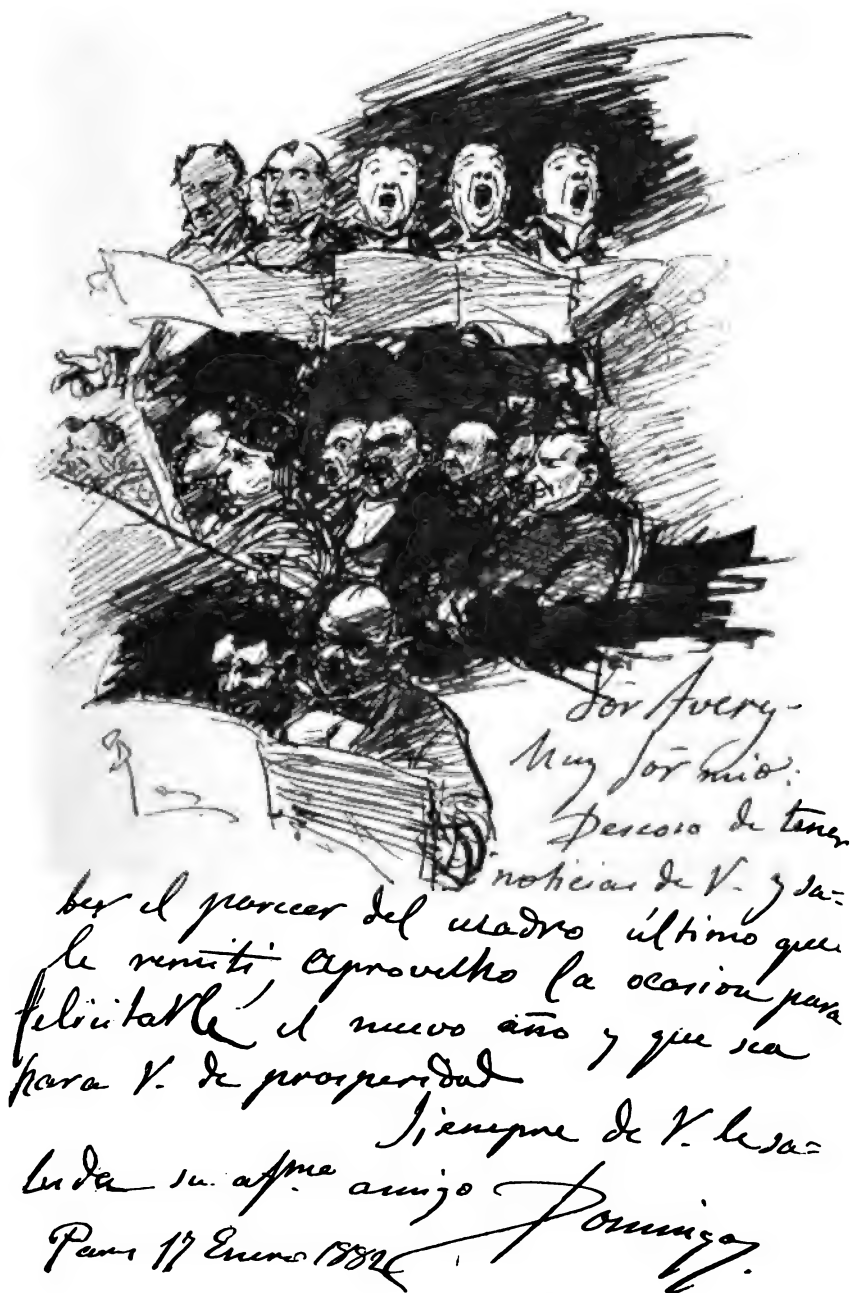 Sor Avery-
Muy Sor mio:
Deseoso de tener
noticias de V. y sa=
ber el parecer del cuadro último que
le remití, aprovecho la ocasion para
felicitarle el nuevo año y que sea
para V. de prosperidad
Siempre de V. le sa=
luda su afmo amigo Domingo.
Paris 17 Enero 1882